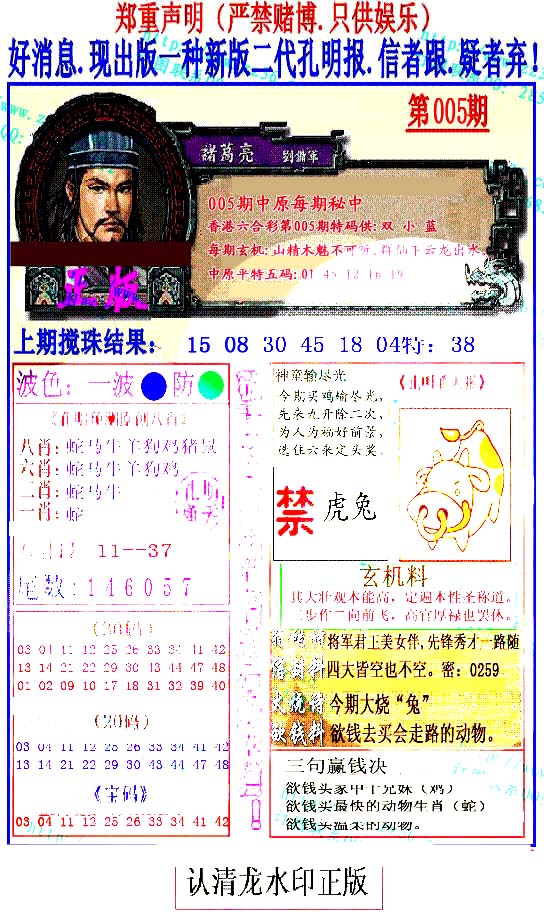 郑重声明（严禁赌博.只供娱乐）
好消息.现出版一种新版二代孔明报.信者跟.疑者弃!
第005期
諸葛亮 劉備軍
005期中原每期秘中
香港六合彩第005期特码供: 双 小 蓝
每期玄机: 山精木魅不可听.群仙下云龙出水.
中原平特五码: 01 45 12 16 19
正版
上期搅珠结果： 15 08 30 45 18 04特：38
波色：一波 防
八肖: 蛇马牛羊狗鸡猪鼠
六肖: 蛇马牛羊狗鸡
二肖: 蛇马牛
一肖: 蛇
11--37
尾数:146057
（30码）
03 04 11 12 25 26 33 34 41 42
13 14 21 22 29 30 43 44 47 48
01 02 09 10 17 18 31 32 39 40
（20码）
03 04 11 12 25 26 33 34 41 42
13 14 21 22 29 30 43 44 47 48
《宝码》
03 04 11 12 25 26 33 34 41 42
神童输尽光
今期买鸡输尽光,
先来九升除二次,
为人为福好前景,
选住六来定头奖.
禁 虎兔
玄机料
其大壮观本能高，定遍本性圣称道。
二步作二向前飞，高官厚禄也罢休。
将军君王美女伴,先锋秀才一路随
四大皆空也不空。密：0259
今期大烧“兔”
欲钱去买会走路的动物。
三句赢钱决
欲钱买家中十兄妹（鸡）
欲钱买最快的动物生肖（蛇）
欲钱买温柔的动物。
认清龙水印正版